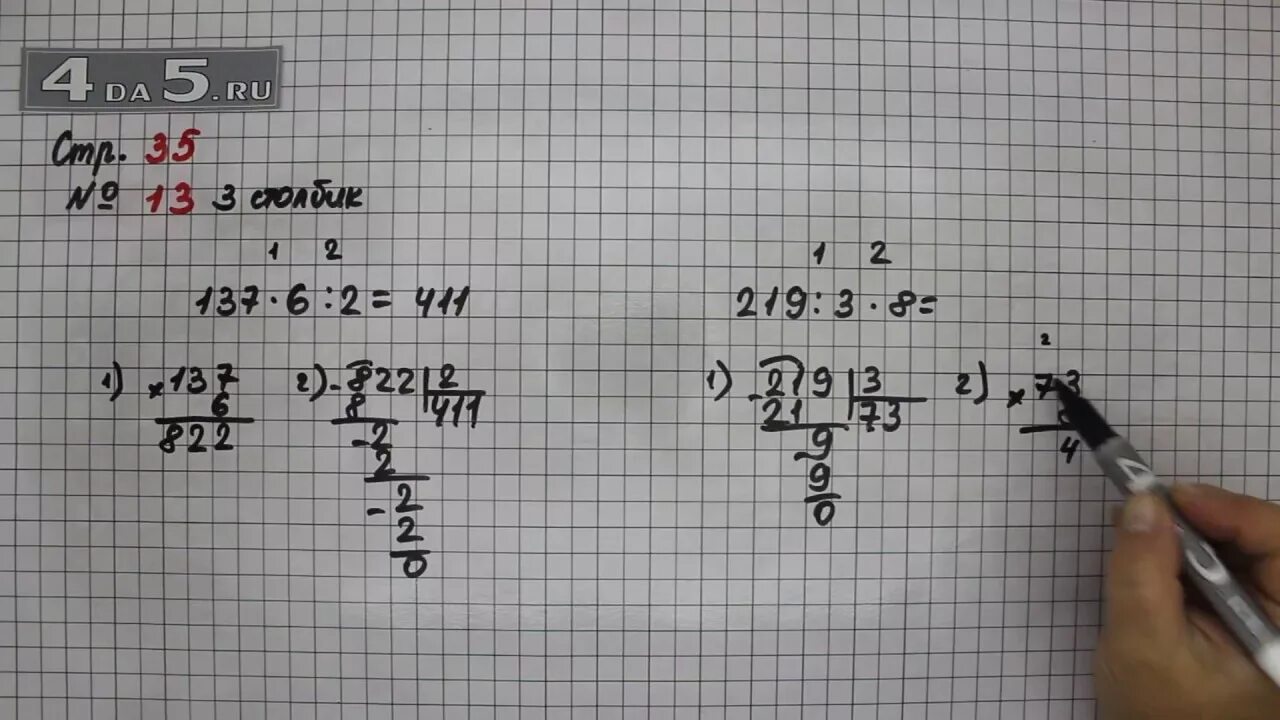 4DA5.RU
Стр. 35
№ 13 3 столбик
1 2
137 · 6 : 2 = 411
1) × 137
6
822
2) - 822 | 2
8 411
- 2
2
- 2
2
0
1 2
219 : 3 · 8 =
1) - 219 | 3
21 73
- 9
9
0
2
2) × 73
4